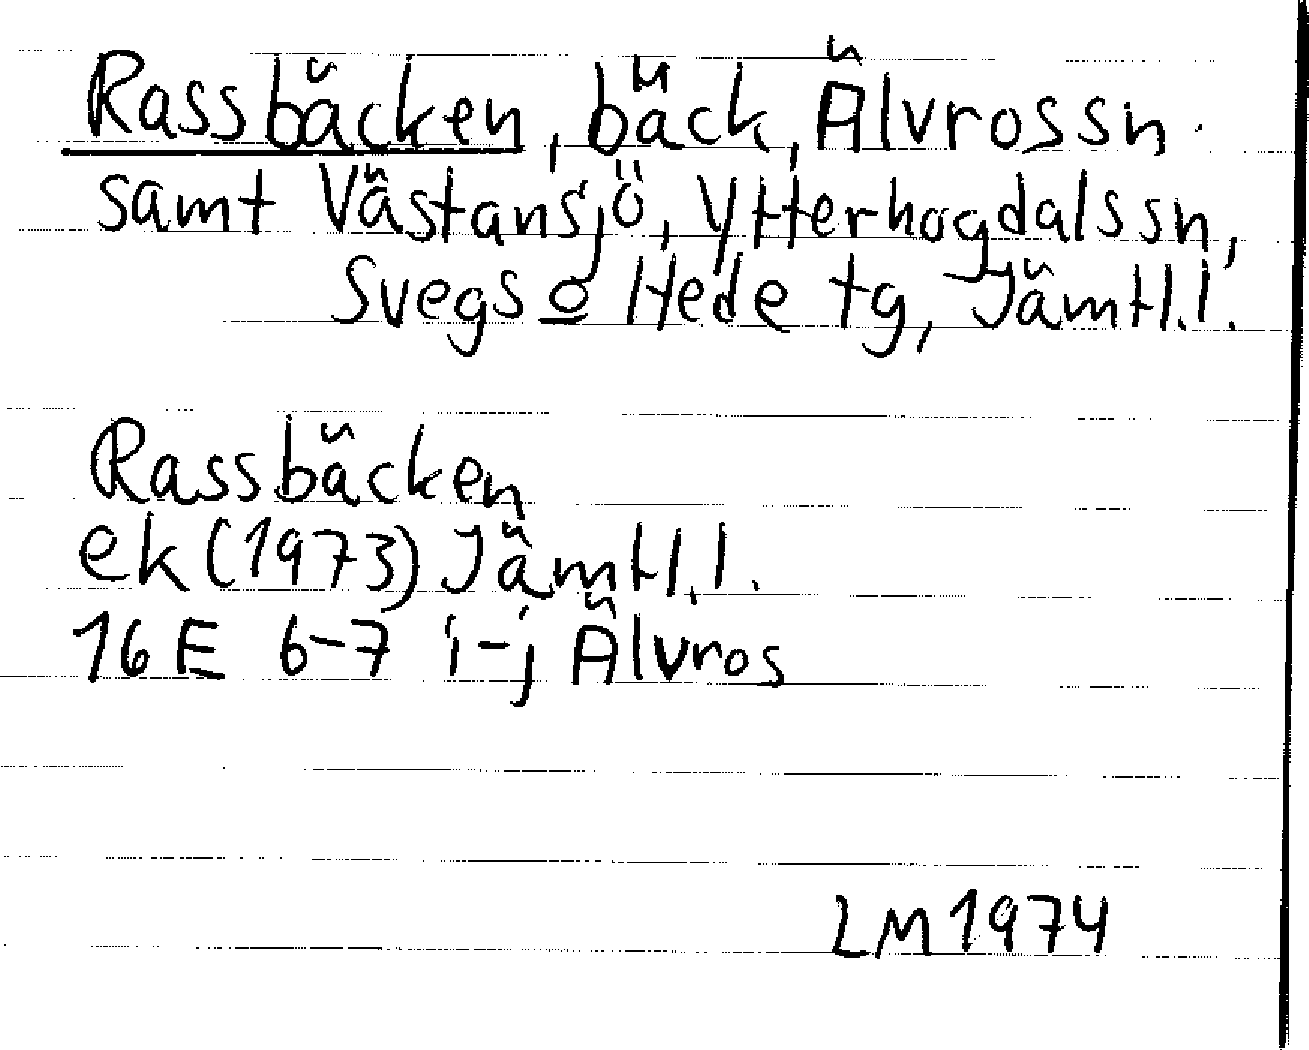 Rassbäcken, bäck, Älvros sn
samt Västansjö, Ytterhogdals sn,
Svegs o Hede tg, Jämtl.l.
Rassbäcken
ek (1973) Jämtl.l.
16 E 6-7 i-j Älvros
LM 1974